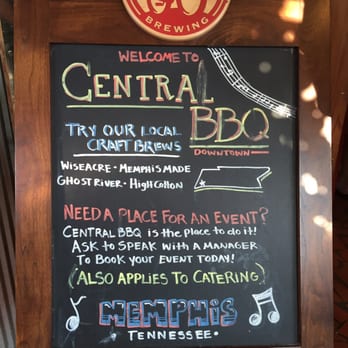 BREWING
WELCOME TO
CENTRAL
BBQ
TRY OUR LOCAL
CRAFT BREWS
DOWNTOWN
WISEACRE - MEMPHIS MADE
GHOST RIVER - HIGH COTTON
NEED A PLACE FOR AN EVENT?
CENTRAL BBQ IS THE PLACE TO DO IT!
ASK TO SPEAK WITH A MANAGER
TO BOOK YOUR EVENT TODAY!
(ALSO APPLIES TO CATERING)
MEMPHIS
TENNESSEE.